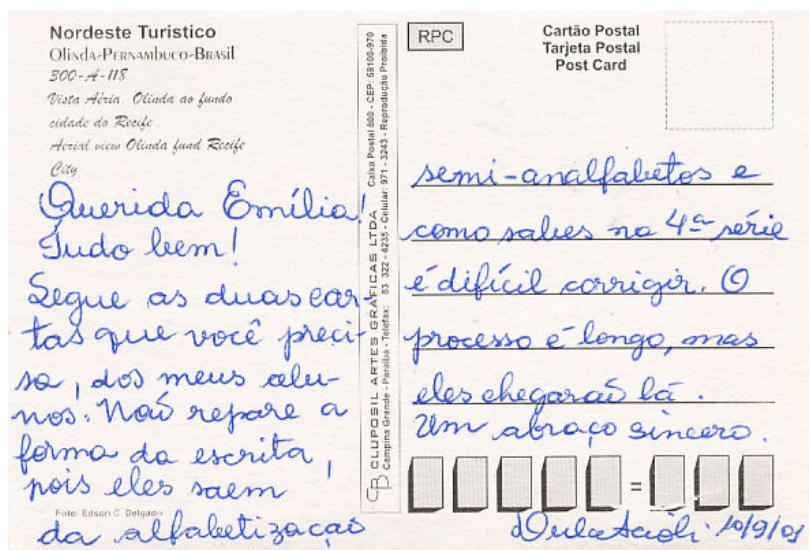 Nordeste Turístico
Olinda-Pernambuco-Brasil
300-A-118
Vista Aéria. Olinda ao fundo
cidade do Recife
Aerial view Olinda fund Recife
City
Querida Emília!
Tudo bem!
Segue as duas car-
tas que você preci-
sa, dos meus alu-
nos. Naõ repare a
forma da escrita,
pois eles saem
Foto: Edson C. Delgado
da alfabetizaçaõ
CLUPOSIL ARTES GRÁFICAS LTDA Caixa Postal 800 - CEP: 58100-970
Campina Grande - Paraíba - Telefax: 83 322 - 4235 - Celular: 971 - 3243 - Reprodução Proibida
RPC
Cartão Postal
Tarjeta Postal
Post Card
semi-analfabetos e
como sabes na 4ª série
é difícil corrigir. O
processo é longo, mas
eles chegaraõ lá.
Um abraço sincero.
=
10/9/01